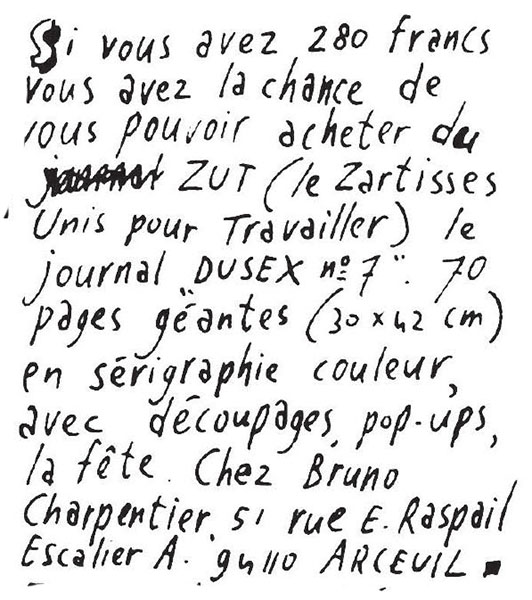 Si vous avez 280 francs
vous avez la chance de
vous pouvoir acheter du
journal ZUT (le Zartisses
Unis pour Travailler) le
journal "DUSEX nº7". 70
pages géantes (30 x 42 cm)
en sérigraphie couleur,
avec découpages, pop-ups,
la fête. Chez Bruno
Charpentier, 51 rue E. Raspail
Escalier A. 94110 ARCEUIL.